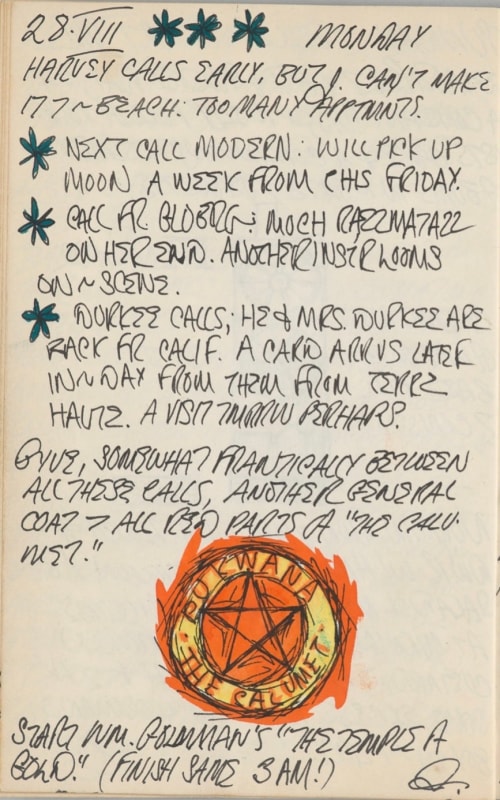 28·VIII MONDAY
HARVEY CALLS EARLY, BUT I CAN'T MAKE
IT T~BEACH: TOO MANY APPTMNTS.
NEXT CALL MODERN: WILL PICK UP
MOON A WEEK FROM THIS FRIDAY.
CALL FR. GLOBERG: MUCH RAZZMATAZZ
ON HER END. ANOTHER INSTR LOOMS
ON ~ SCENE.
DURKEE CALLS; HE & MRS. DURKEE ARE
BACK FR CALIF. A CARD ARRVS LATER
IN ~ DAY FROM THEM FROM TERRE
HAUTE. A VISIT TMRRW PERHAPS.
GIVE, SOMEWHAT FRANTICALLY BETWEEN
ALL THESE CALLS, ANOTHER GENERAL
COAT T ALL RED PARTS O "THE CALU-
MET."
PUKWANA
· THE CALUMET ·
START WM. GOLDMAN'S "THE TEMPLE O
GOLD." (FINISH SAME 3 AM!)